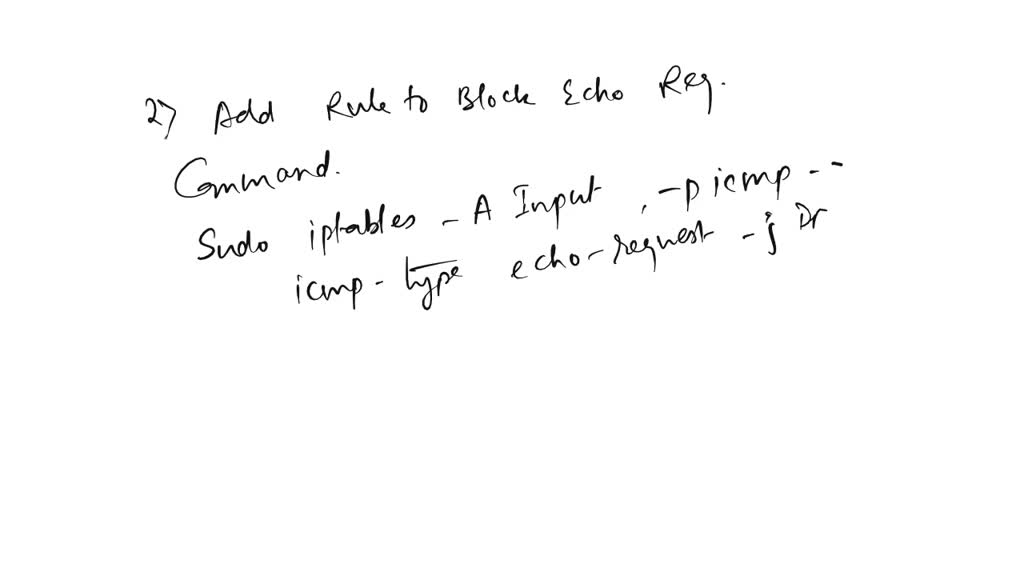 2) Add Rule to Block Echo Req.
Command.
Sudo iptables -A Input , -p icmp --
icmp-type echo-request -j Dr